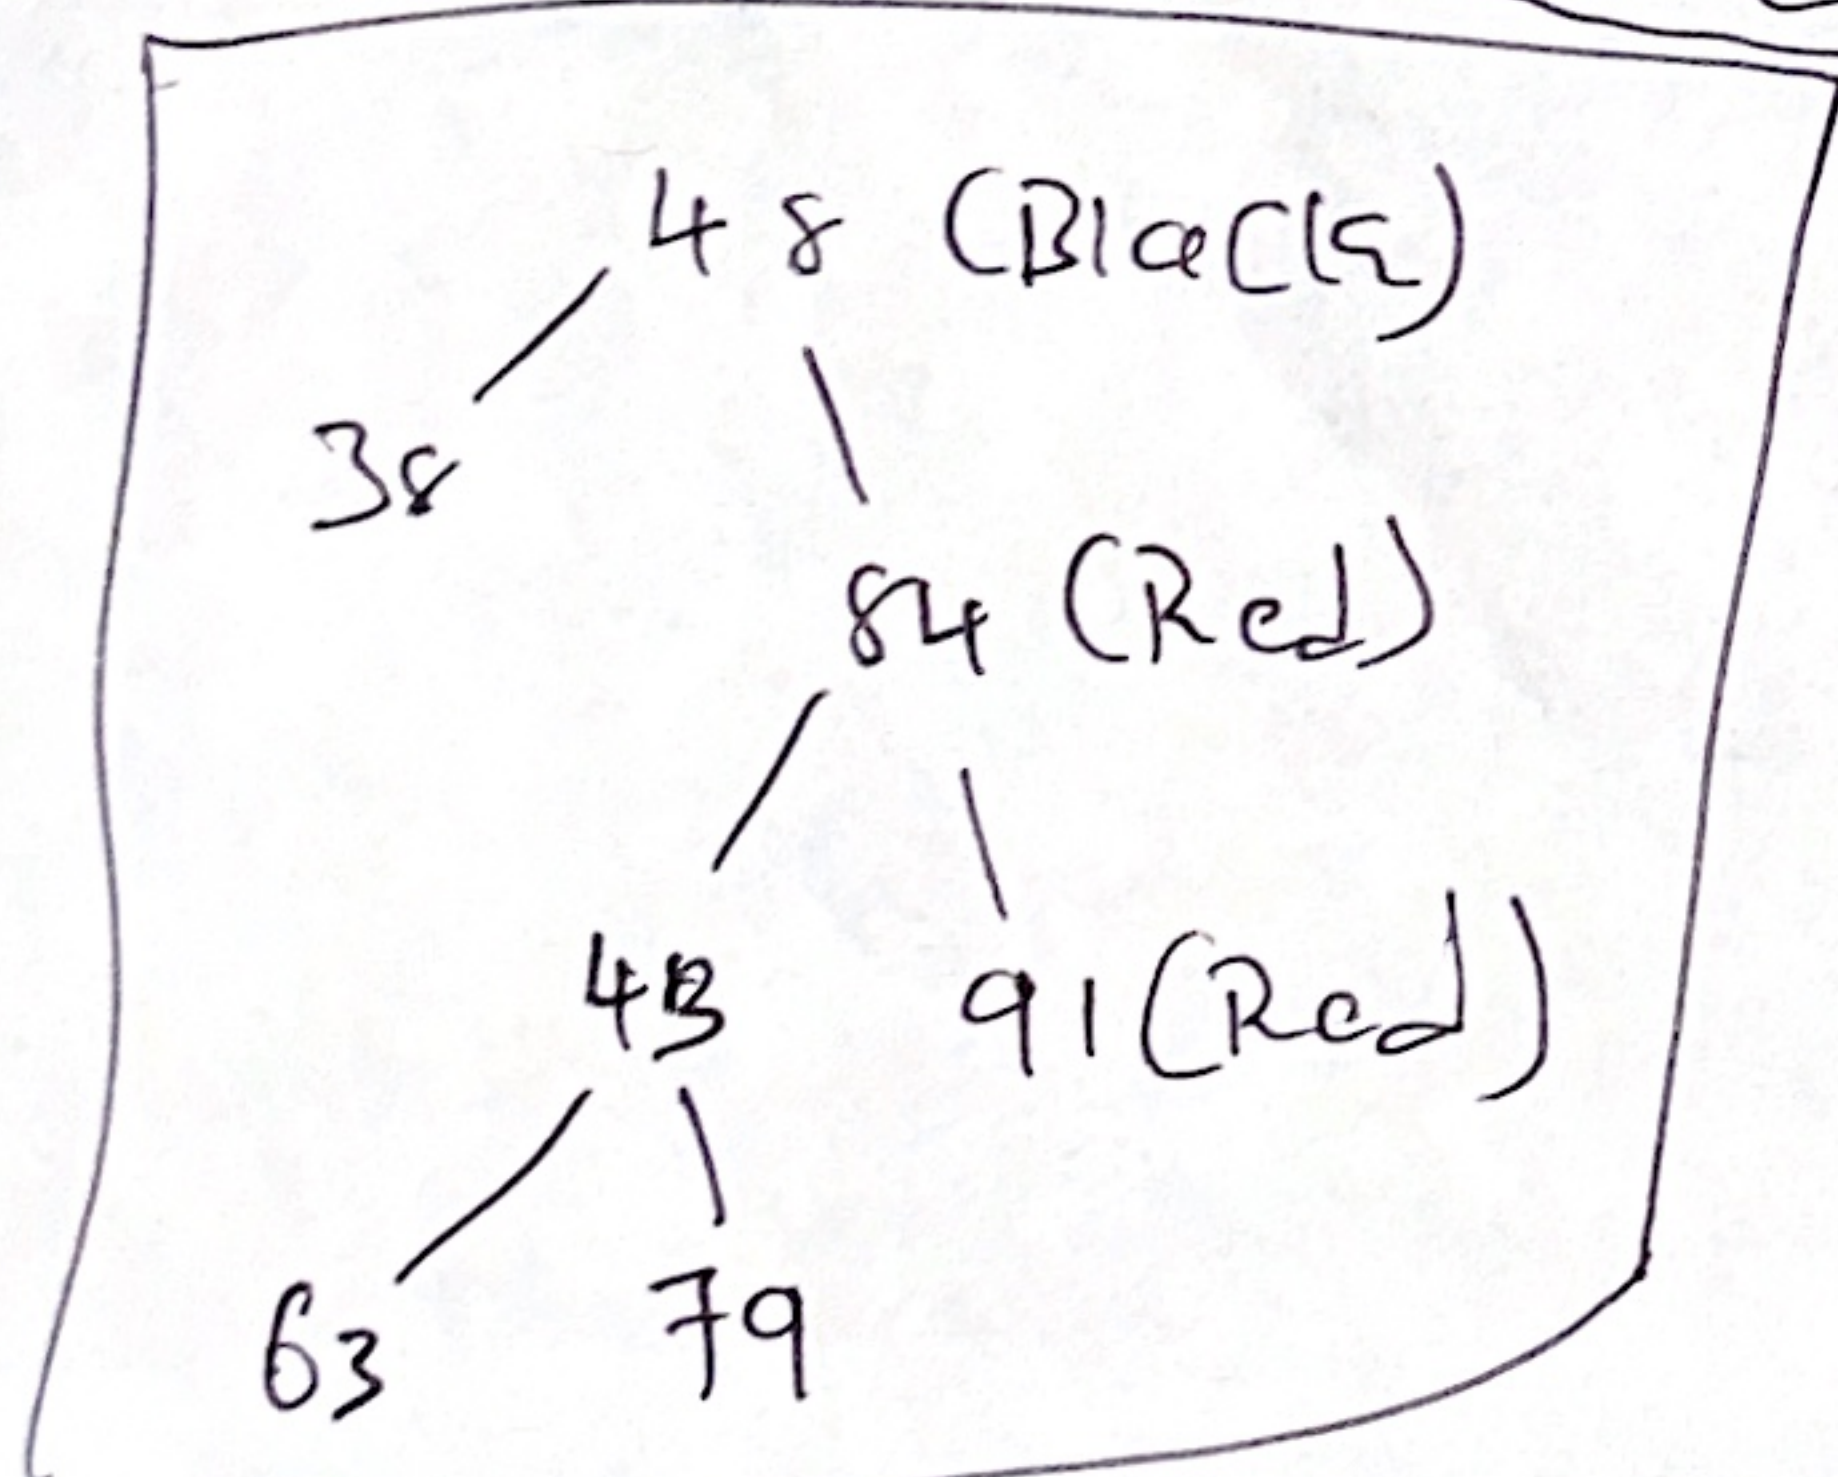 48 (Black)
38
84 (Red)
43 91 (Red)
63 79